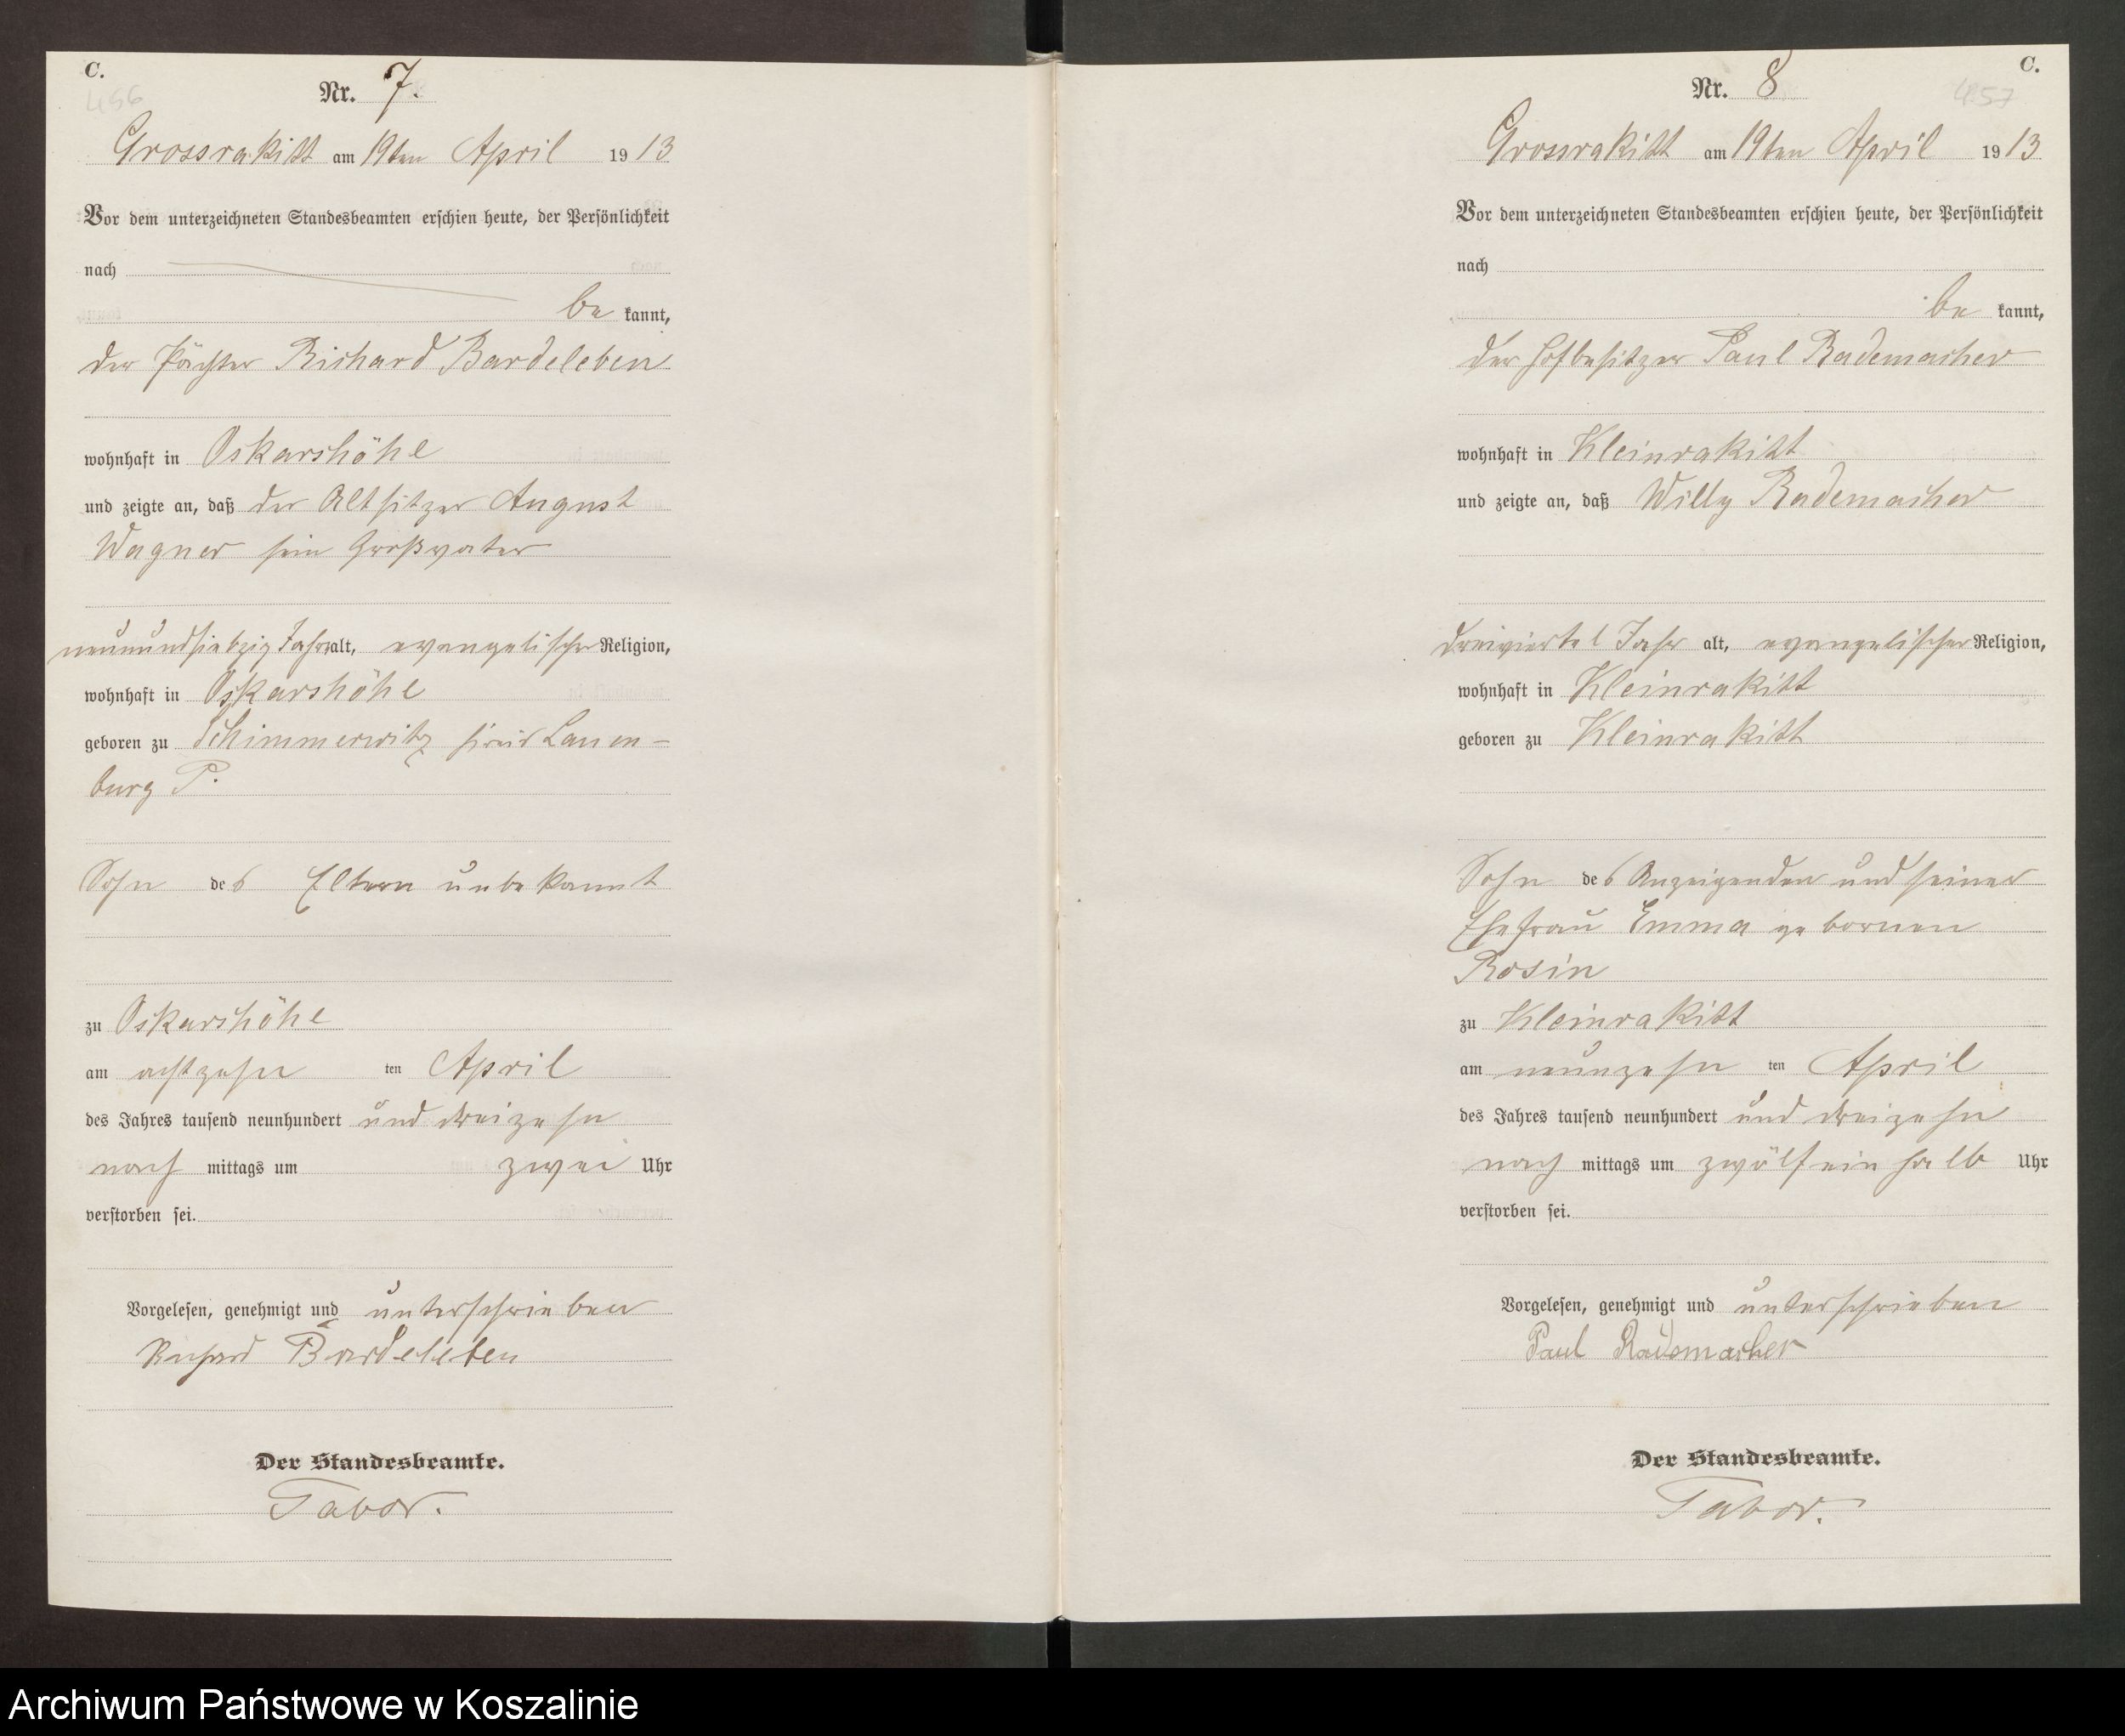 C.
456
Nr. 7.
Grossrakitt am 19ten April 1913
Vor dem unterzeichneten Standesbeamten erschien heute, der Persönlichkeit
nach
be kannt,
der Pächter Richard Bardeleben
wohnhaft in Oskarshöhe
und zeigte an, daß der Altsitzer August
Wagner sein Großvater
neunundsiebzig Jahre alt, evangelischer Religion,
wohnhaft in Oskarshöhe
geboren zu Schimmerwitz Kreis Lauen-
burg P.
Sohn des Eltern unbekannt
zu Oskarshöhe
am achtzehn ten April
des Jahres tausend neunhundert und dreizehn
nach mittags um zwei Uhr
verstorben sei.
Vorgelesen, genehmigt und unterschrieben
Richard Bardeleben
Der Standesbeamte.
Tabor.
C.
457
Nr. 8
Grossrakitt am 19ten April 1913
Vor dem unterzeichneten Standesbeamten erschien heute, der Persönlichkeit
nach
be kannt,
der Hofbesitzer Paul Rademacher
wohnhaft in Kleinrakitt
und zeigte an, daß Willy Rademacher
dreiviertel Jahr alt, evangelischer Religion,
wohnhaft in Kleinrakitt
geboren zu Kleinrakitt
Sohn des Anzeigenden und seiner
Ehefrau Emma gebornen
Rosin
zu Kleinrakitt
am neunzehn ten April
des Jahres tausend neunhundert und dreizehn
nach mittags um zwölfeinhalb Uhr
verstorben sei.
Vorgelesen, genehmigt und unterschrieben
Paul Rademacher
Der Standesbeamte.
Tabor.
Archiwum Państwowe w Koszalinie